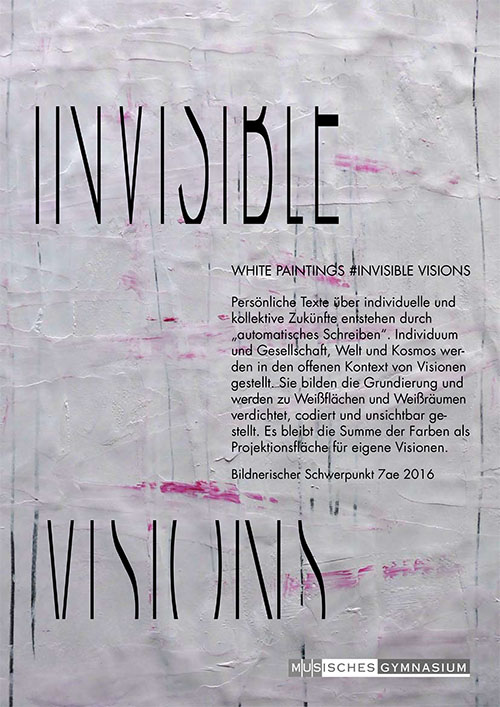 INVISIBLE
WHITE PAINTINGS #INVISIBLE VISIONS
Persönliche Texte über individuelle und
kollektive Zukünfte entstehen durch
„automatisches Schreiben“. Individuum
und Gesellschaft, Welt und Kosmos wer-
den in den offenen Kontext von Visionen
gestellt. Sie bilden die Grundierung und
werden zu Weißflächen und Weißräumen
verdichtet, codiert und unsichtbar ge-
stellt. Es bleibt die Summe der Farben als
Projektionsfläche für eigene Visionen.
Bildnerischer Schwerpunkt 7ae 2016
VISIONS
MUSISCHES GYMNASIUM